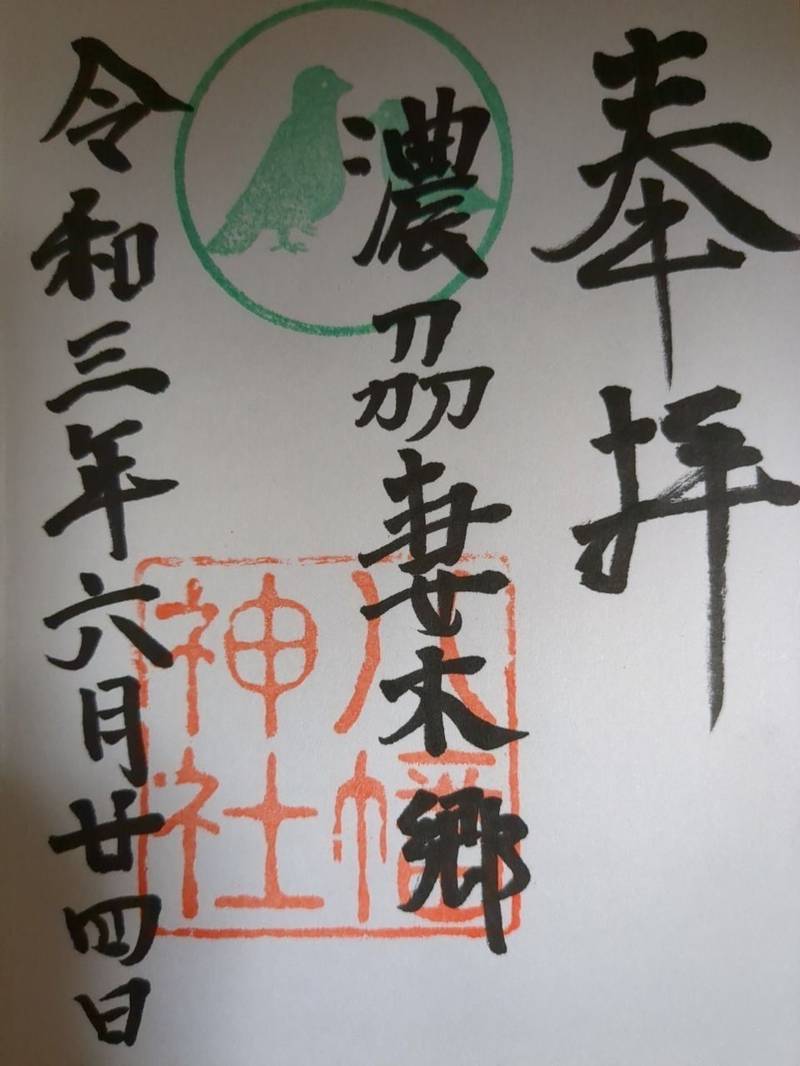 奉拝
濃刕妻木郷
八幡神社
令和三年六月廿四日